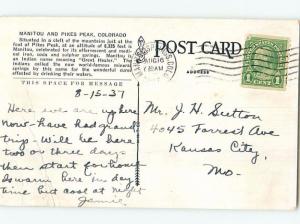 MANITOU AND PIKES PEAK, COLORADO
Situated in a cleft of the mountains just at the
foot of Pikes Peak, at an altitude of 6,335 feet is
Manitou, celebrated for its effervescent and medicinal
springs, soda, iron and sulphur. Manitou is
an Indian name meaning "Great Healer." The
Indians called the new world-famous
springs by this name for the wonderful cures
effected by drinking their waters.
THIS SPACE FOR MESSAGE
POST CARD
ADDRESS
AUG 16
7 30 AM
1 CENT 1
8-15-37
Here we are up here
now - have had grand
trip. Will be here
two or three days
then start for home
Is warm here in day
time but cool at night
Jennie
Mr. J. H. Sutton
4045 Forrest Ave
Kansas City,
Mo.